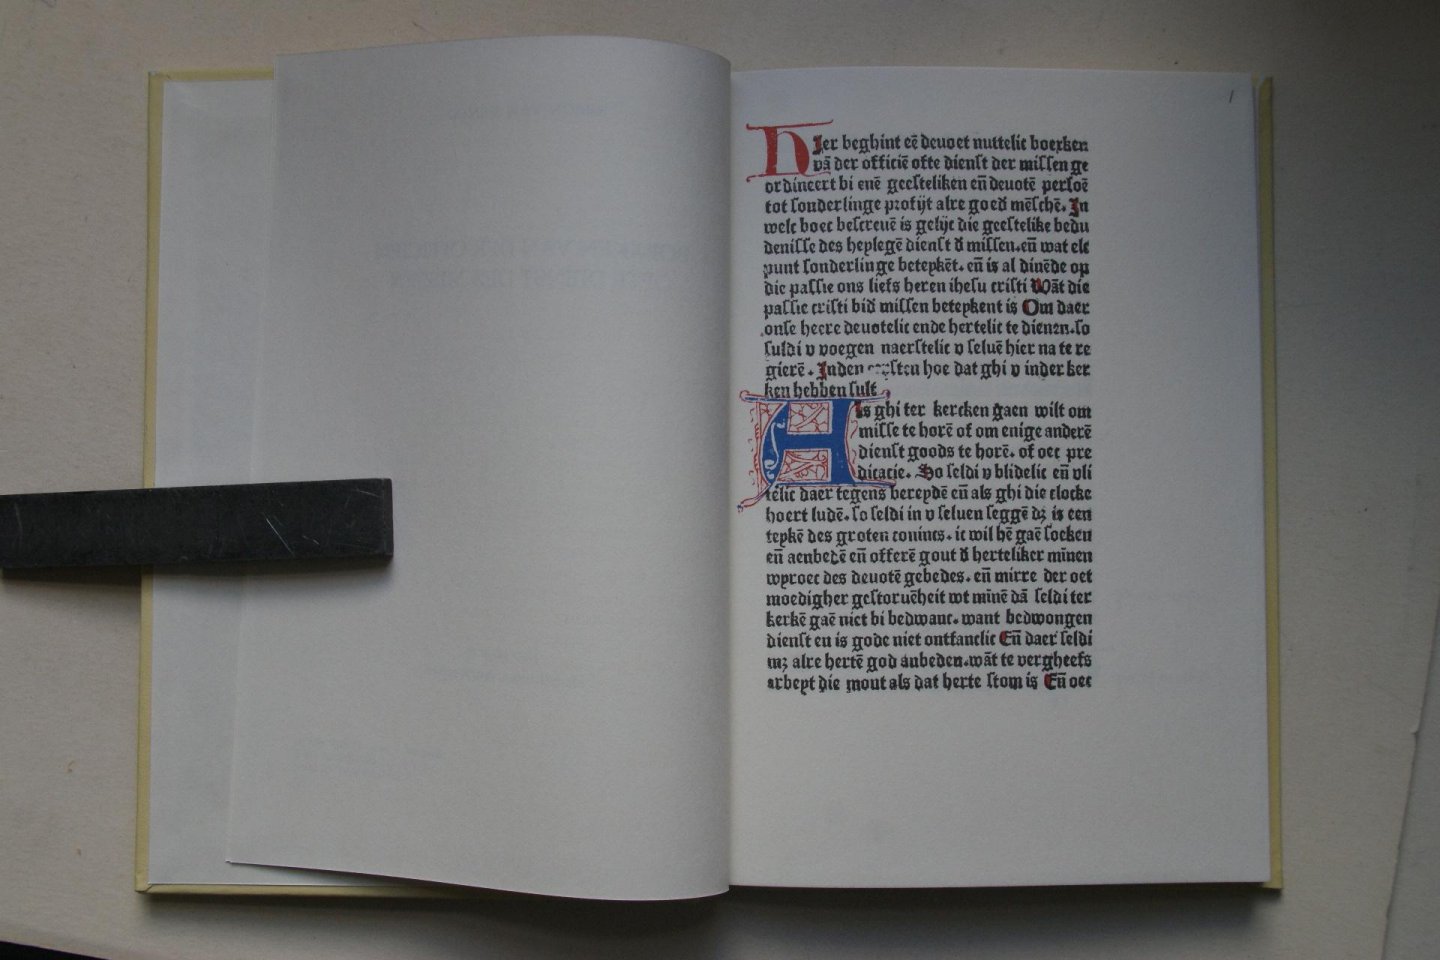 1
HIer beghint eē deuoet nuttelic boexken
vā der officiē ofte dienst der missen ge
ordineert bi enē geesteliken eñ deuotē persoē
tot sonderlinge profijt alre goed mēschē. In
welc boec bescreuē is gelijc die geestelike bedu
denisse des heylegē dienst đ missen. eñ wat elc
punt sonderlinge beteykēt. eñ is al dinēde op
die passie ons liefs heren ihesu cristi Wāt die
passie cristi bid missen beteykent is Om daer
onse heere deuotelic ende hertelic te dienen. so
suldi v voegen naerstelic v seluē hier na te re
gierē. Inden eersten hoe dat ghi v inder ker
ken hebben sult
Als ghi ter kercken gaen wilt om
misse te horē of om enige anderē
dienst goods te horē. of oec pre
dicacie. So seldi v blidelic eñ vli
telic daer tegens bereydē eñ als ghi die clocke
hoert ludē. so seldi in v seluen seggē dz is een
teykē des groten conincs. ic wil hē gaē soeken
eñ aenbedē eñ offerē gout đ herteliker minen
wyroec des deuotē gebedes. eñ mirre der oet
moedigher gestoruēheit wt minē dā seldi ter
kerkē gaē niet bi bedwanc. want bedwongen
dienst en is gode niet ontfanclic Eñ daer seldi
mz alre hertē god anbeden. wāt te vergheefs
arbeyt die mont als dat herte stom is Eñ oec